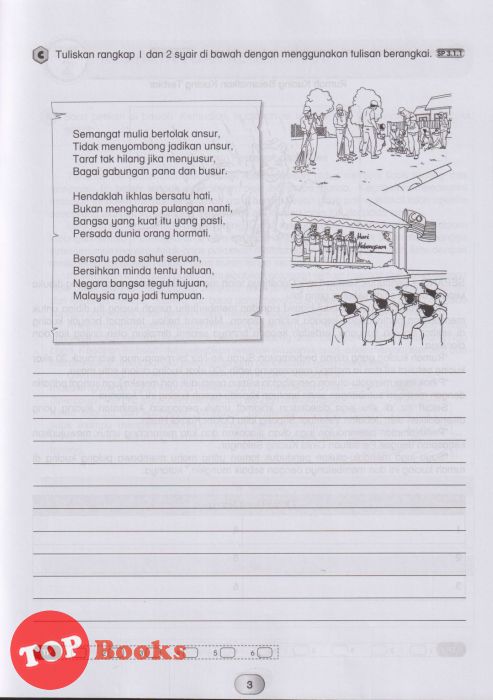 C Tuliskan rangkap 1 dan 2 syair di bawah dengan menggunakan tulisan berangkai. SP 3.1.1
Semangat mulia bertolak ansur,
Tidak menyombong jadikan unsur,
Taraf tak hilang jika menyusur,
Bagai gabungan pana dan busur.
Hendaklah ikhlas bersatu hati,
Bukan mengharap pulangan nanti,
Bangsa yang kuat itu yang pasti,
Persada dunia orang hormati.
Bersatu pada sahut seruan,
Bersihkan minda tentu haluan,
Negara bangsa teguh tujuan,
Malaysia raya jadi tumpuan.
Hari
Kebangsaan
TOP Books
5 6
3